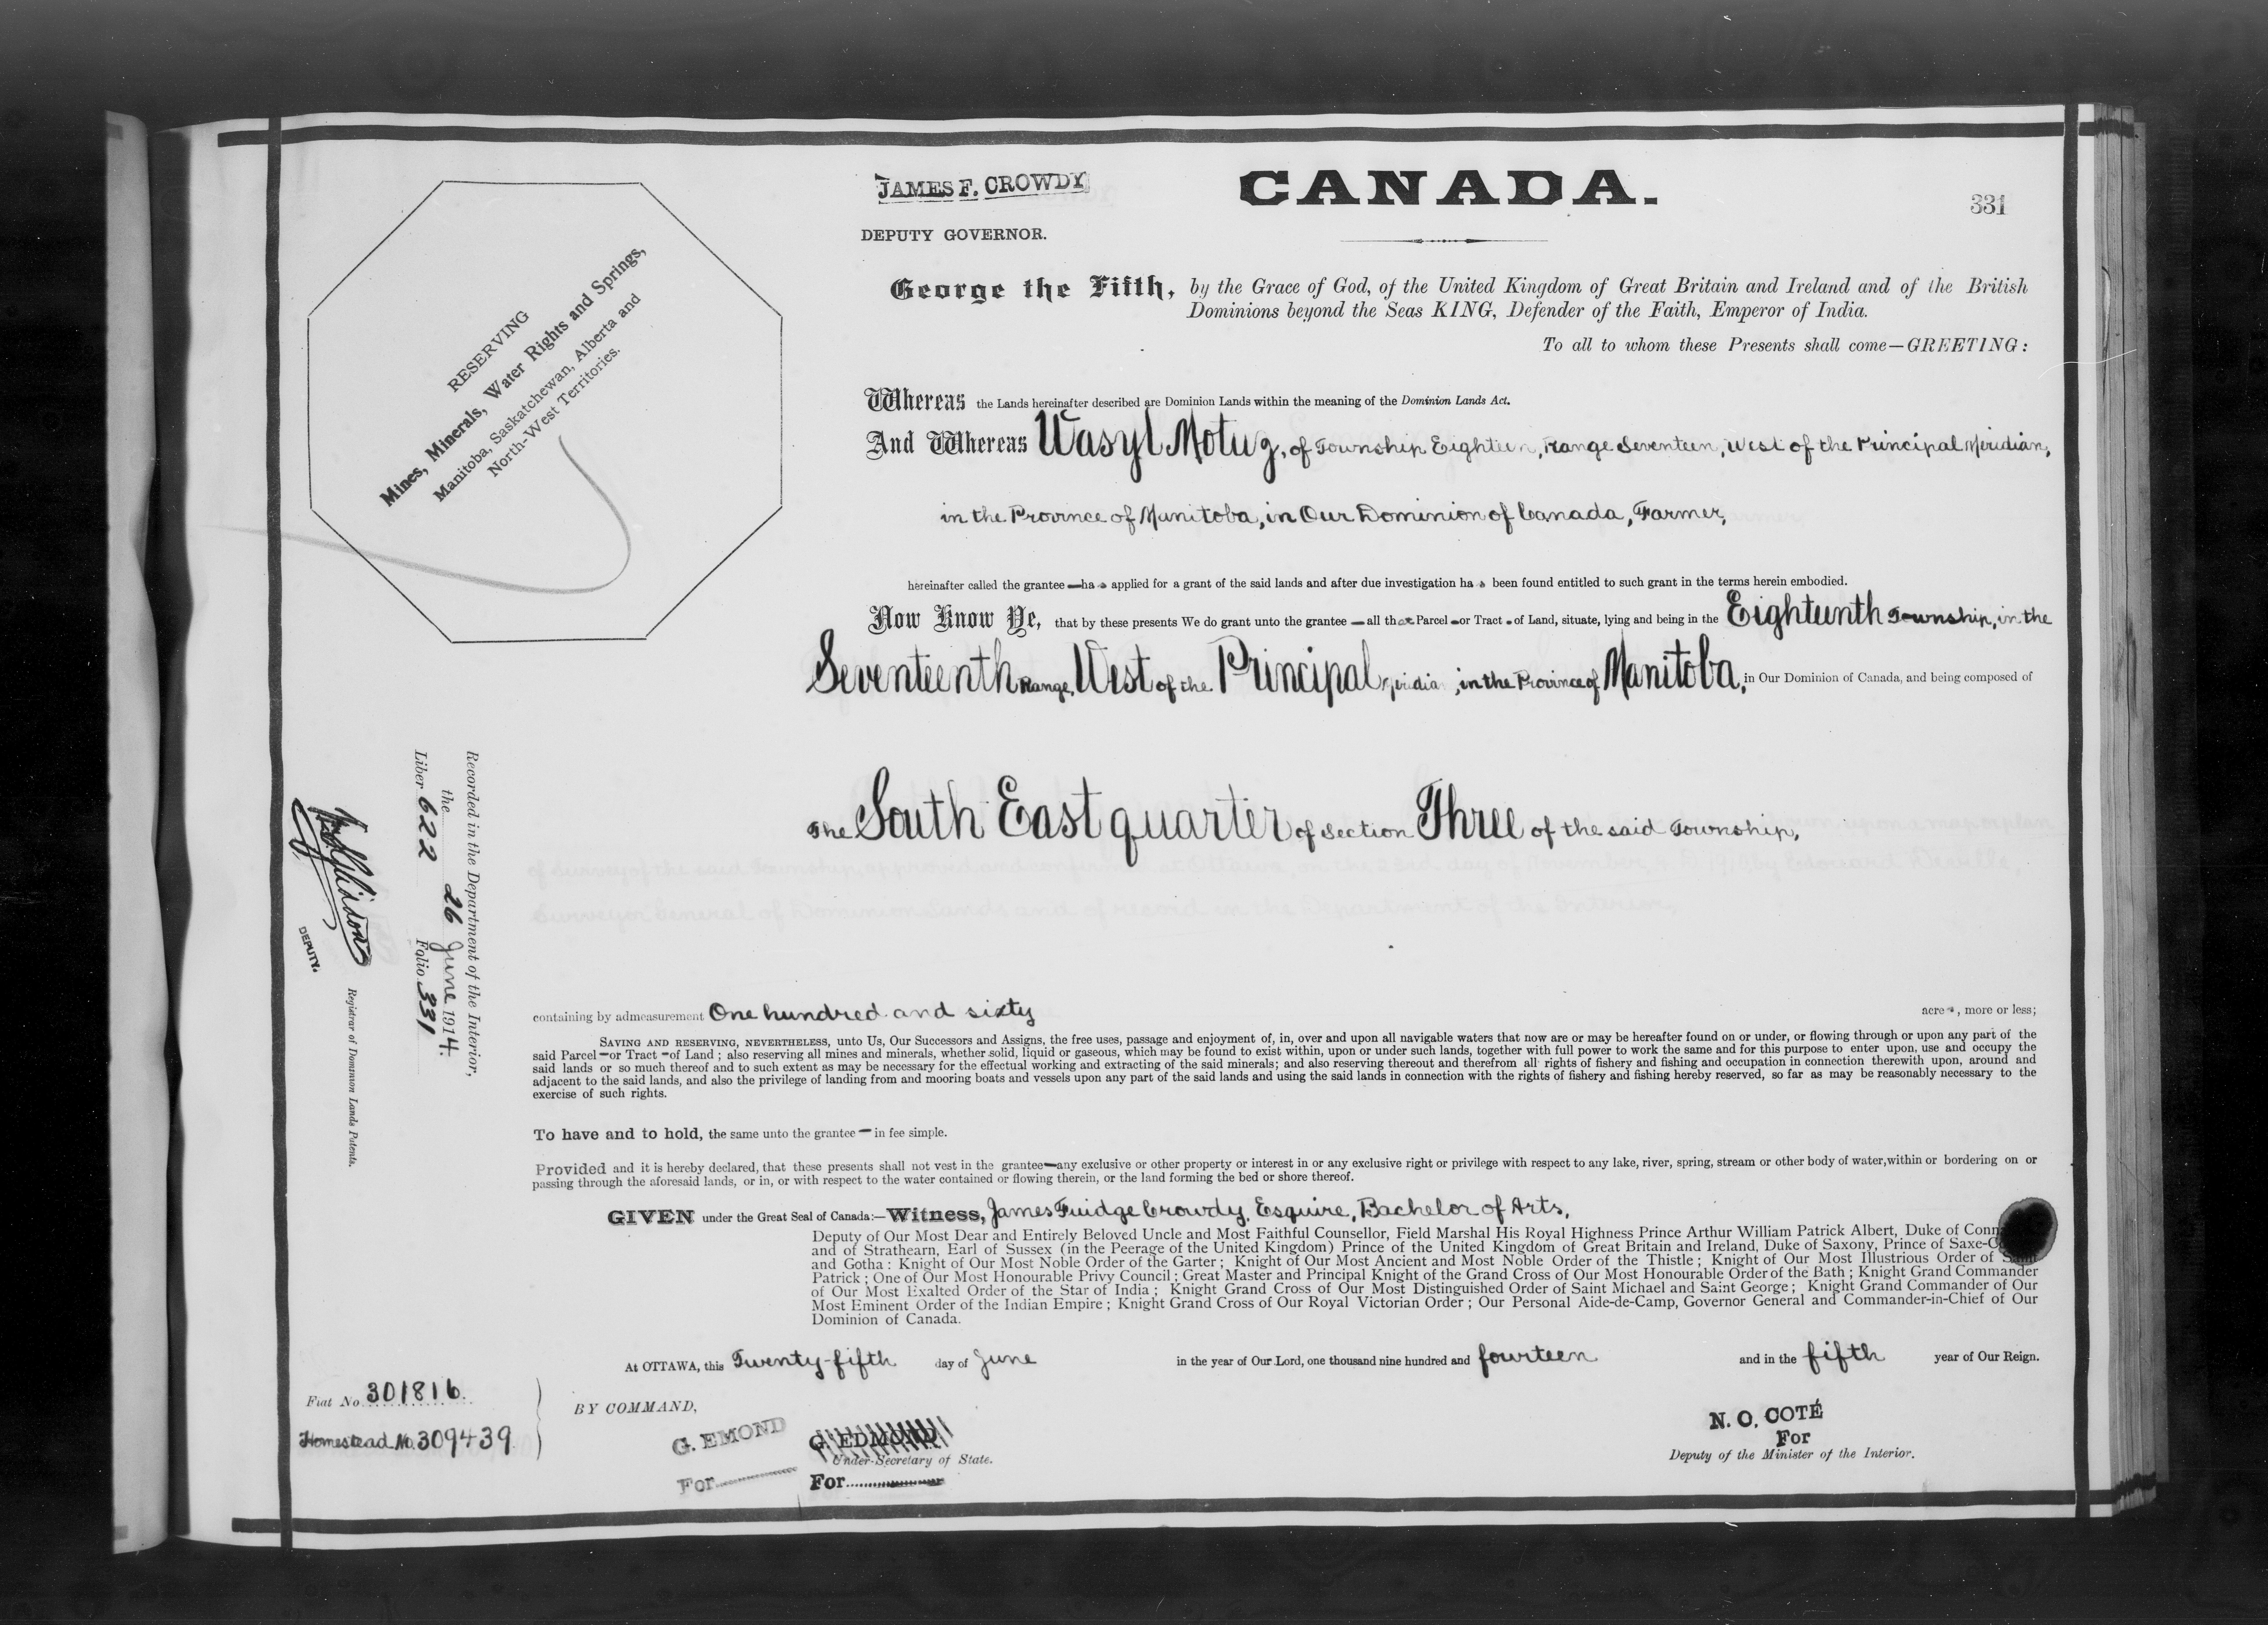 JAMES F. CROWDY
CANADA.
331
DEPUTY GOVERNOR.
George the Fifth, by the Grace of God, of the United Kingdom of Great Britain and Ireland and of the British
Dominions beyond the Seas KING, Defender of the Faith, Emperor of India.
To all to whom these Presents shall come—GREETING:
RESERVING
Mines, Minerals, Water Rights and Springs,
Manitoba, Saskatchewan, Alberta and
North-West Territories.
Whereas the Lands hereinafter described are Dominion Lands within the meaning of the Dominion Lands Act.
And Whereas Wasyl Motug, of Township Eighteen, Range Seventeen, West of the Principal Meridian,
in the Province of Manitoba, in Our Dominion of Canada, Farmer,
hereinafter called the grantee — has applied for a grant of the said lands and after due investigation has been found entitled to such grant in the terms herein embodied.
Now Know Ye, that by these presents We do grant unto the grantee — all that Parcel — or Tract - of Land, situate, lying and being in the Eighteenth Township, in the
Seventeenth Range, West of the Principal Meridian, in the Province of Manitoba, in Our Dominion of Canada, and being composed of
The South East quarter of Section Three of the said Township,
containing by admeasurement One hundred and sixty acres, more or less;
SAVING AND RESERVING, NEVERTHELESS, unto Us, Our Successors and Assigns, the free uses, passage and enjoyment of, in, over and upon all navigable waters that now are or may be hereafter found on or under, or flowing through or upon any part of the
said Parcel — or Tract — of Land; also reserving all mines and minerals, whether solid, liquid or gaseous, which may be found to exist within, upon or under such lands, together with full power to work the same and for this purpose to enter upon, use and occupy the
said lands or so much thereof and to such extent as may be necessary for the effectual working and extracting of the said minerals; and also reserving thereout and therefrom all rights of fishery and fishing and occupation in connection therewith upon, around and
adjacent to the said lands, and also the privilege of landing from and mooring boats and vessels upon any part of the said lands and using the said lands in connection with the rights of fishery and fishing hereby reserved, so far as may be reasonably necessary to the
exercise of such rights.
To have and to hold, the same unto the grantee — in fee simple.
Provided and it is hereby declared, that these presents shall not vest in the grantee — any exclusive or other property or interest in or any exclusive right or privilege with respect to any lake, river, spring, stream or other body of water, within or bordering on or
passing through the aforesaid lands, or in, or with respect to the water contained or flowing therein, or the land forming the bed or shore thereof.
GIVEN under the Great Seal of Canada:—Witness, James Fuidge Crowdy, Esquire, Bachelor of Arts,
Deputy of Our Most Dear and Entirely Beloved Uncle and Most Faithful Counsellor, Field Marshal His Royal Highness Prince Arthur William Patrick Albert, Duke of Conn
and of Strathearn, Earl of Sussex (in the Peerage of the United Kingdom) Prince of the United Kingdom of Great Britain and Ireland, Duke of Saxony, Prince of Saxe-C
and Gotha: Knight of Our Most Noble Order of the Garter; Knight of Our Most Ancient and Most Noble Order of the Thistle; Knight of Our Most Illustrious Order of Saint
Patrick; One of Our Most Honourable Privy Council; Great Master and Principal Knight of the Grand Cross of Our Most Honourable Order of the Bath; Knight Grand Commander
of Our Most Exalted Order of the Star of India; Knight Grand Cross of Our Most Distinguished Order of Saint Michael and Saint George; Knight Grand Commander of Our
Most Eminent Order of the Indian Empire; Knight Grand Cross of Our Royal Victorian Order; Our Personal Aide-de-Camp, Governor General and Commander-in-Chief of Our
Dominion of Canada.
At OTTAWA, this Twenty-fifth day of June in the year of Our Lord, one thousand nine hundred and fourteen and in the fifth year of Our Reign.
BY COMMAND,
G. EMOND
For
G. EDMOND
Under-Secretary of State.
For
N. O. COTÉ
For
Deputy of the Minister of the Interior.
Fiat No. 301816.
Homestead No. 309439
Recorded in the Department of the Interior,
the 26 June 1914.
Liber 622 Folio 331
DEPUTY.
Registrar of Dominion Lands Patents.